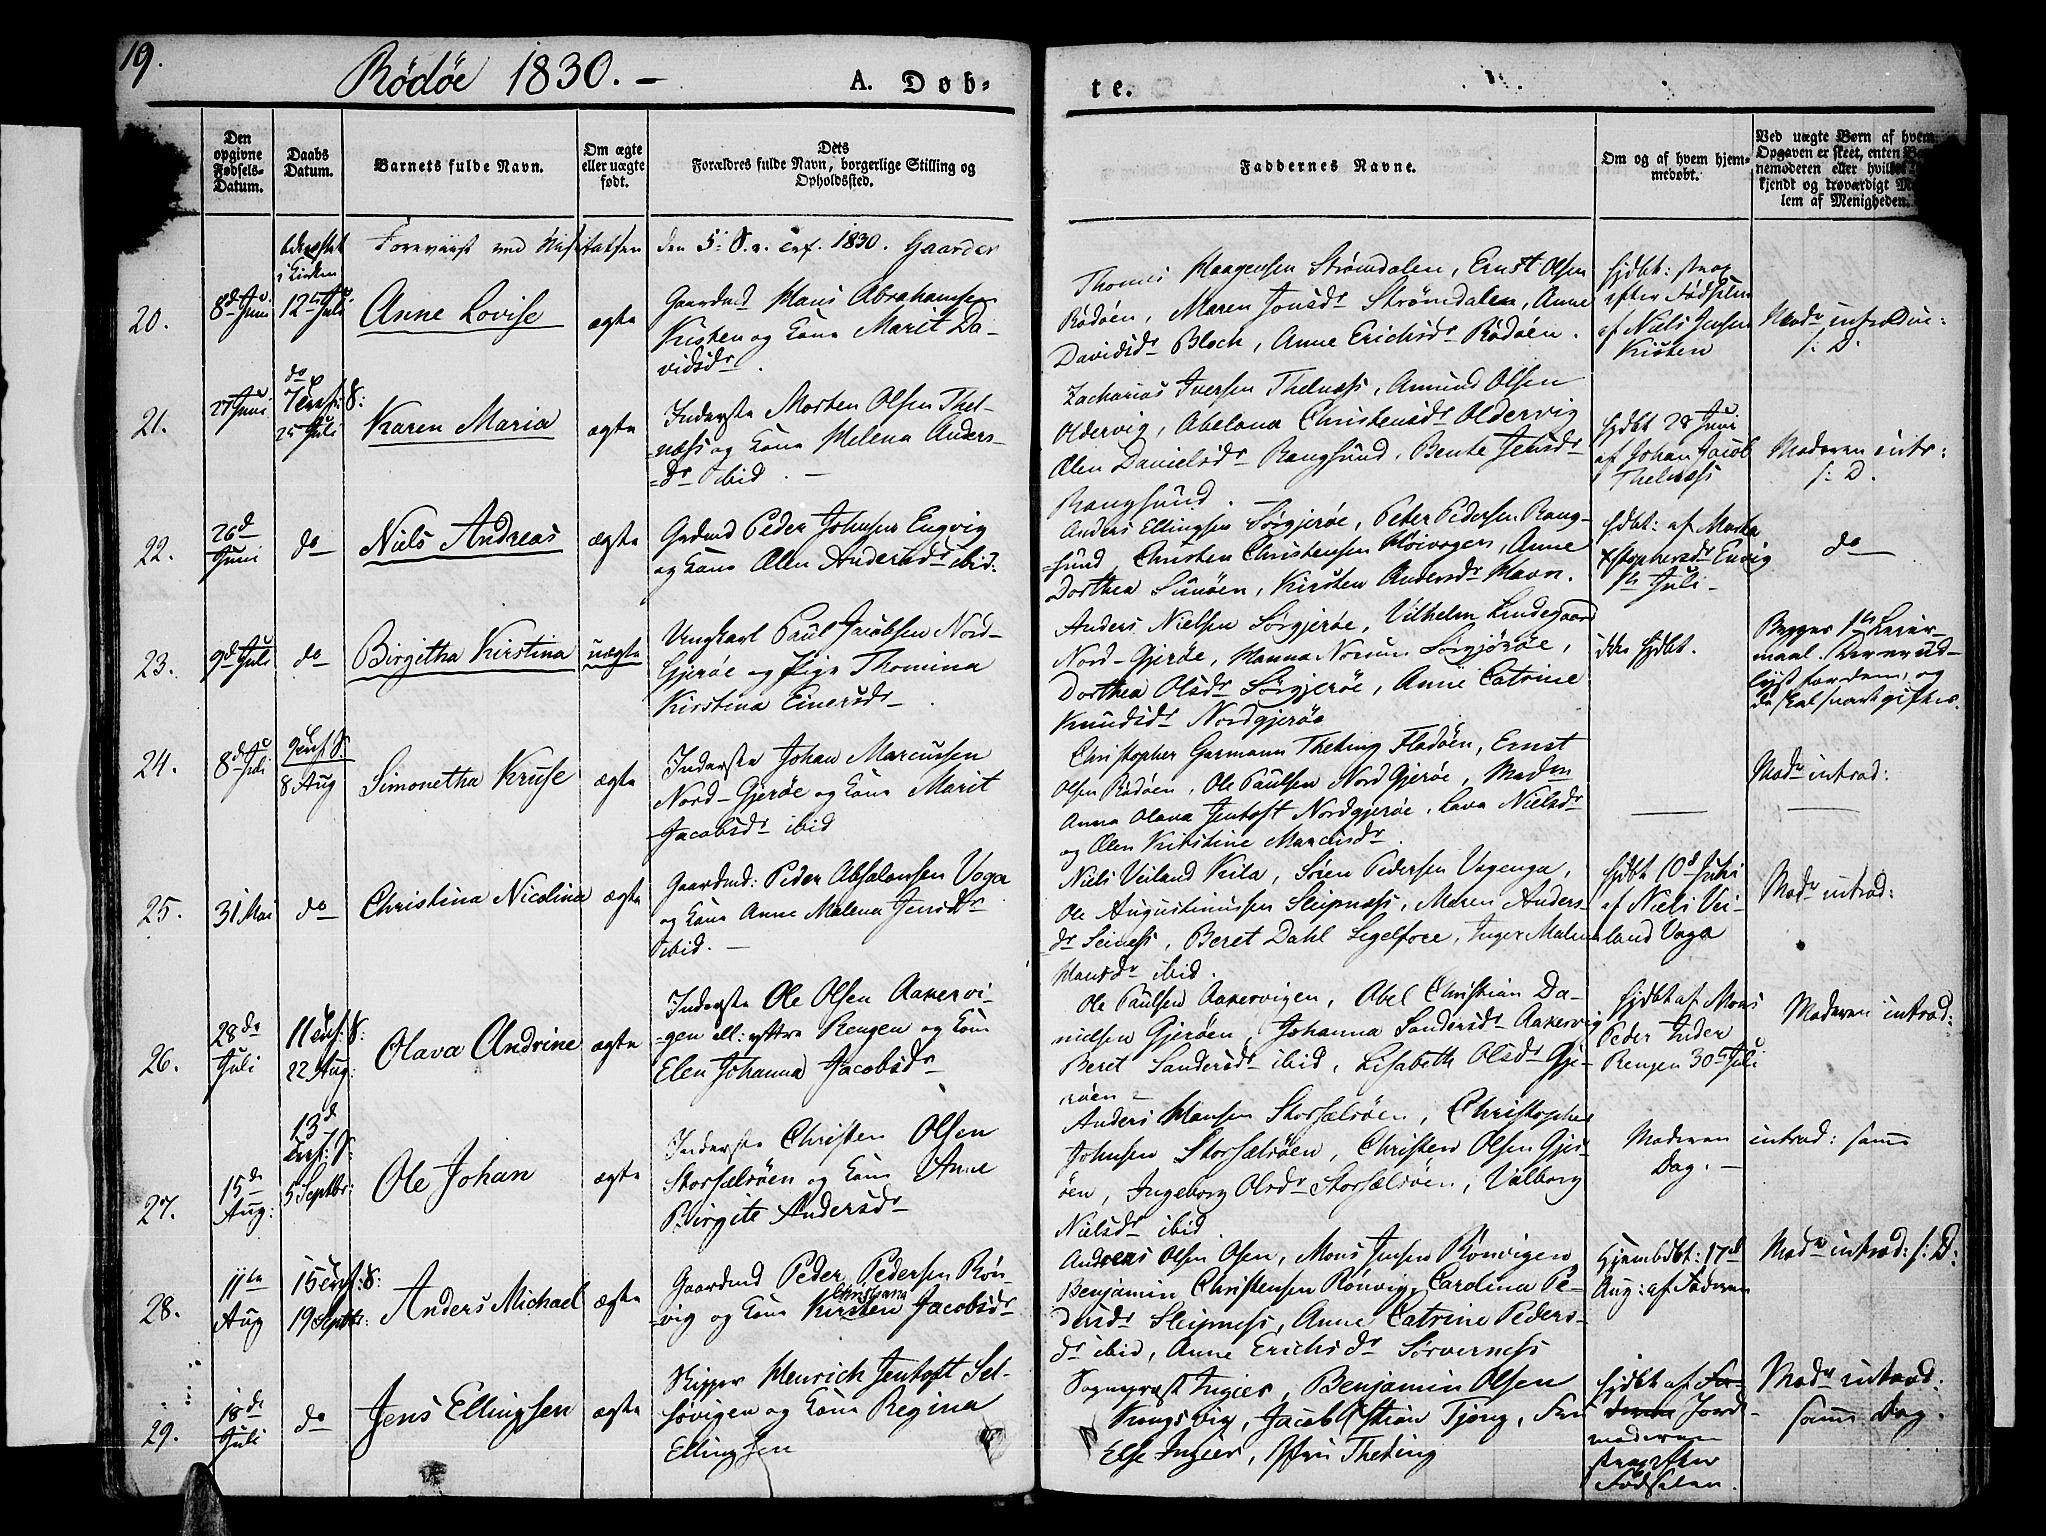 19.
Rödöe 1830. –
A. Døb-
te.
Den opgivne Fødsels-Datum.
Daabs Datum.
Barnets fulde Navn.
Om ægte eller uægte født.
Dets Forældres fulde Navn, borgerlige Stilling og Opholdssted.
Faddernes Navne.
Om og af hvem hjem-medøbt.
Ved uægte Børn af hvem
Opgaven er skeet, enten
nemoderen eller
kjendt og troværdigt
lem af Menigheden.
Foreviist ved Visitatsen den 5 S. e. Trf. 1830. Gaarder
20.
8d Juni
i Kirken
12te Juli
Anne Lovise
ægte
Gaardmd Hans Abrahamsen
Kisten og Kone Marit Da-
vidsdr.
Thomes Haagensen Strømdalen, Ernst Olsen
Rödöen, Maren Jonsdr Strömdalen, Anne
Davidsdr Bloch, Anne Erichsdr Rödöen.
hjdbt: strax
efter Födselen
af Niels Jensen
Kisten
Modr introduc:
s: D.
21.
27 Juni
do
7 Trf: S:
25 Juli
Karen Maria
ægte
Inderste Morten Olsen Thel-
næss og Kone Helena Anders-
dr ibid. –
Zacharias Iversen Thelnæss, Amund Olsen
Oldervig, Abelona Christensdr Oldervig
Elen Danielsdr Rangsund, Bente Jensdr
Rangsund.
hjdbt 28 Juni
af Johan Jacob
Thelnæss
Moderen intr:
s: D.
22.
26d
Juni
do
Niels Andreas
ægte
Grdmd Peder Johnsen Engvig
og Kone Elen Andersdr ibid.
Anders Ellingsen Sörgjeröe, Peter Pedersen Rang-
sund, Christen Christensen Höivogen, Anne
Dorthea Sunöen, Kirsten Andersdr Havn.
hjdbt: af Marta
Xstophersdr Envig
1ste Juli –
do
23.
9d Juli
do
Birgitha Kirstina
uægte
Ungkarl Paul Jacobsen Nord-
Gjeröe og Pige Thomina
Kirstina Einersdr.
Anders Nielsen Sörgjeröe, Vilhelm Lindegaard
Nord-Gjeröe, Hanna Norum Sörgjöröe,
Dorthea Olsdr Sörgjeröe, Anne Catrine
Knudsdr Nordgjeröe
ikke hjdbt.
Begges 1ste Leier-
maal. Der er ud-
lyst for dem, og
de skal snart giftes.
24.
8d Juli
9 Trf S.
8 Aug
Simonetha Kruse
ægte
Inderste Johan Marcussen
Nord-Gjeröe og Kone Marit
Jacobsdr ibid
Christopher Garmann Theting Flaöen, Ernst
Olsen Rödöen, Ole Paulsen Nord Gjeröe, Madm
Anna Olava Jentoft Nordgjeröe, Lava Nielsdr
og Elen Kirstine Marcusdr.
Modr introd:
25.
31 Mai
do
Christina Nicolina
ægte
Gaardmd: Peder Absalonsen Vaga
og Kone Anne Malena Jensdr
ibid. –
Niels Veiland Kila, Sören Pedersen Vagenga,
Ole Augustinussen Sleipnæss, Maren Anders-
dr Seiness, Beret Dahl Segelfore, Inger Malena
Hansdr ibid.
hjdbt 10d Juni
af Niels Vei-
land Vaga
Modr introd:
26.
28de
Juli
11 Trf: S:
22 Aug:
Olava Andrine
ægte
Inderste Ole Olsen Aakervi-
gen ell: yttre Rengen og Kone
Elen Johanna Jacobsdr
Ole Paulsen Aakervigen, Abel Christian Da-
nielsen Gjeröen, Johanna Sandersdr Aakervig
Beret Sandersdr ibid, Lisabeth Olsdr Gje-
röen –
hjdbt af Mons
Peder Inder
Rengen 30te Juli
Moderen introd:
27.
15de
Aug:
13d
Trf: S:
5 Septbr:
Ole Johan
ægte
Inderste Christen Olsen
Storsælsöen og Kone Anne
Birgite Andersdr
Anders Hansen Storsælsöen, Christopher
Johnsen Storsælsöen, Christen Olsen Gjer-
öen, Ingeborg Olsdr Storsælsöen, Valborg
Nielsdr ibid.
Moderen introd: samme
Dag. –
28.
11te
Aug
15 Trf: S:
19 Septbr:
Anders Michael
ægte
Gaardmd Peder Pedersen Rön-
Christiana
vig og Kone Kirsten Jacobsdr
Andreas Olsen Osen, Mons Jensen Rönvigen
Benjamin Christensen Rönvig, Carolina Pe-
dersdr Sleipness, Anne Catrine Peders-
dr ibid, Anne Erichsdr Sörverness
Hjemdbt: 17d
Aug: af Faderen
Modr introd: s: D:
29.
18de
Juli
do
Jens Ellingsen
ægte
Skipper Henrich Jentoft Sel-
sövigen og Kone Regina
Ellingsen
Sognepræst Ingier, Benjamin Olsen
Krongsvig, Jacob Xstian Tjong, Fru
Else Ingier, Jfru Theting
hjdbt af
Jorde-
moderen
strax efter
Födselen.
Modr introd:
samme Dag.